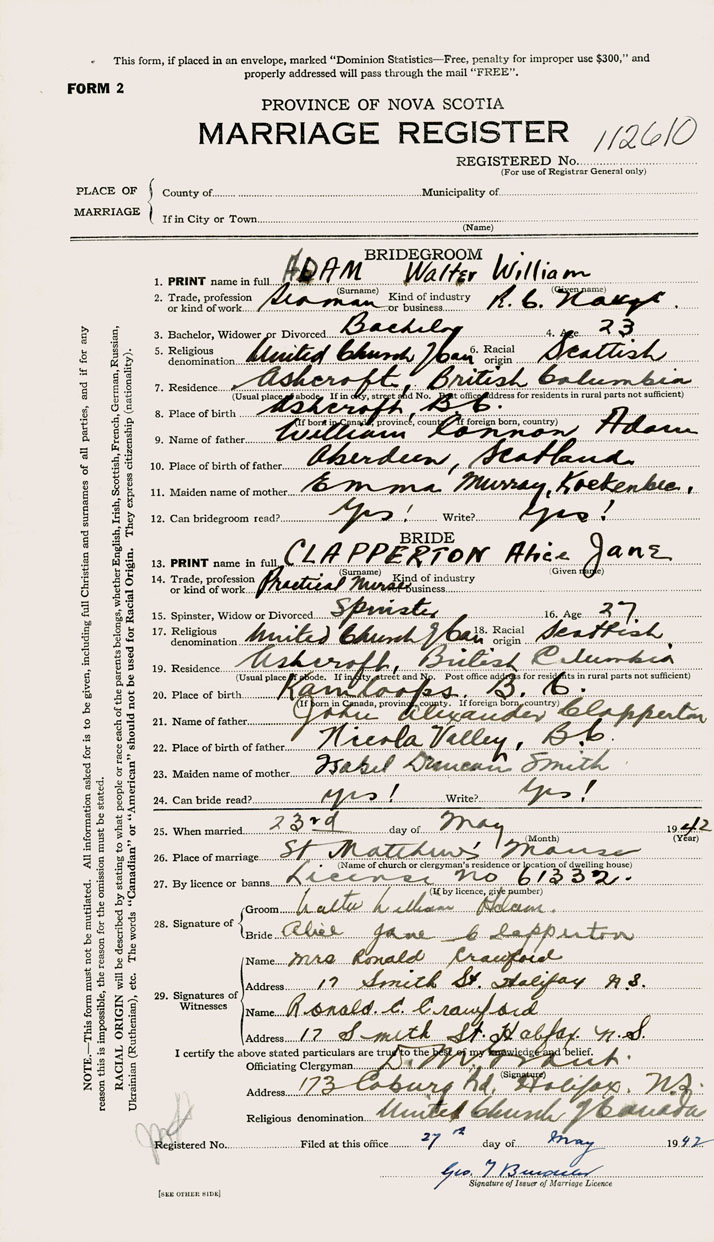 This form, if placed in an envelope, marked "Dominion Statistics—Free, penalty for improper use $300," and
properly addressed will pass through the mail "FREE".
FORM 2
PROVINCE OF NOVA SCOTIA
MARRIAGE REGISTER
112610
REGISTERED No.
(For use of Registrar General only)
PLACE OF MARRIAGE
County of Municipality of
If in City or Town
(Name)
BRIDEGROOM
1. PRINT name in full ADAM Walter William
(Surname) (Given name)
2. Trade, profession or kind of work Seaman Kind of industry or business R. C. Navy.
3. Bachelor, Widower or Divorced Bachelor 4. Age 23
5. Religious denomination United Church of Can 6. Racial origin Scottish
7. Residence Ashcroft, British Columbia
(Usual place of abode. If in city, street and No. Post office address for residents in rural parts not sufficient)
8. Place of birth Ashcroft, B.C.
(If born in Canada, province, county. If foreign born, country)
9. Name of father William Connon Adam
10. Place of birth of father Aberdeen, Scotland
11. Maiden name of mother Emma Murray,
12. Can bridegroom read? Yes! Write? Yes!
BRIDE
13. PRINT name in full CLAPPERTON Alice Jane
(Surname) (Given name)
14. Trade, profession or kind of work Practical Nurse Kind of industry or business
15. Spinster, Widow or Divorced Spinster 16. Age 27
17. Religious denomination United Church of Can 18. Racial origin Scottish
19. Residence Ashcroft, British Columbia
(Usual place of abode. If in city, street and No. Post office address for residents in rural parts not sufficient)
20. Place of birth Kamloops. B. C.
(If born in Canada, province, county. If foreign born, country)
21. Name of father John Alexander Clapperton
22. Place of birth of father Nicola Valley, B.C.
23. Maiden name of mother Isabel Duncan Smith
24. Can bride read? Yes! Write? Yes!
25. When married 23rd day of May 1942
(Month) (Year)
26. Place of marriage St Matthew's Manse
(Name of church or clergyman's residence or location of dwelling house)
27. By licence or banns License No 61332.
(If by licence, give number)
28. Signature of
Groom Walter William Adam.
Bride Alice Jane Clapperton
29. Signatures of Witnesses
Name Mrs Ronald Crawford
Address 17 Smith St. Halifax N.S.
Name Ronald. C. Crawford
Address 17 Smith St. Halifax. N.S.
I certify the above stated particulars are true to the best of my knowledge and belief.
Officiating Clergyman
(Signature)
Address 173 Coburg Rd, Halifax. N.S.
Religious denomination United Church of Canada
Registered No. Filed at this office 27th day of May 1942
Geo. T
Signature of Issuer of Marriage Licence
[SEE OTHER SIDE]
NOTE.—This form must not be mutilated. All information asked for is to be given, including full Christian and surnames of all parties, and if for any
reason this is impossible, the reason for the omission must be stated.
RACIAL ORIGIN will be described by stating to what people or race each of the parents belongs, whether English, Irish, Scottish, French, German, Russian,
Ukrainian (Ruthenian), etc. The words "Canadian" or "American" should not be used for Racial Origin. They express citizenship (nationality).